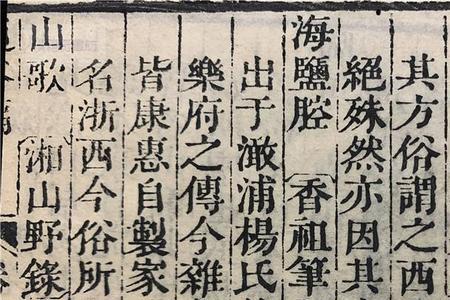 其方俗謂之西
絕殊然亦因其
海鹽腔 香祖筆
出于澉浦楊氏
樂府之傳今雜
皆康惠自製家
名浙西今俗所
山歌 湘山野錄